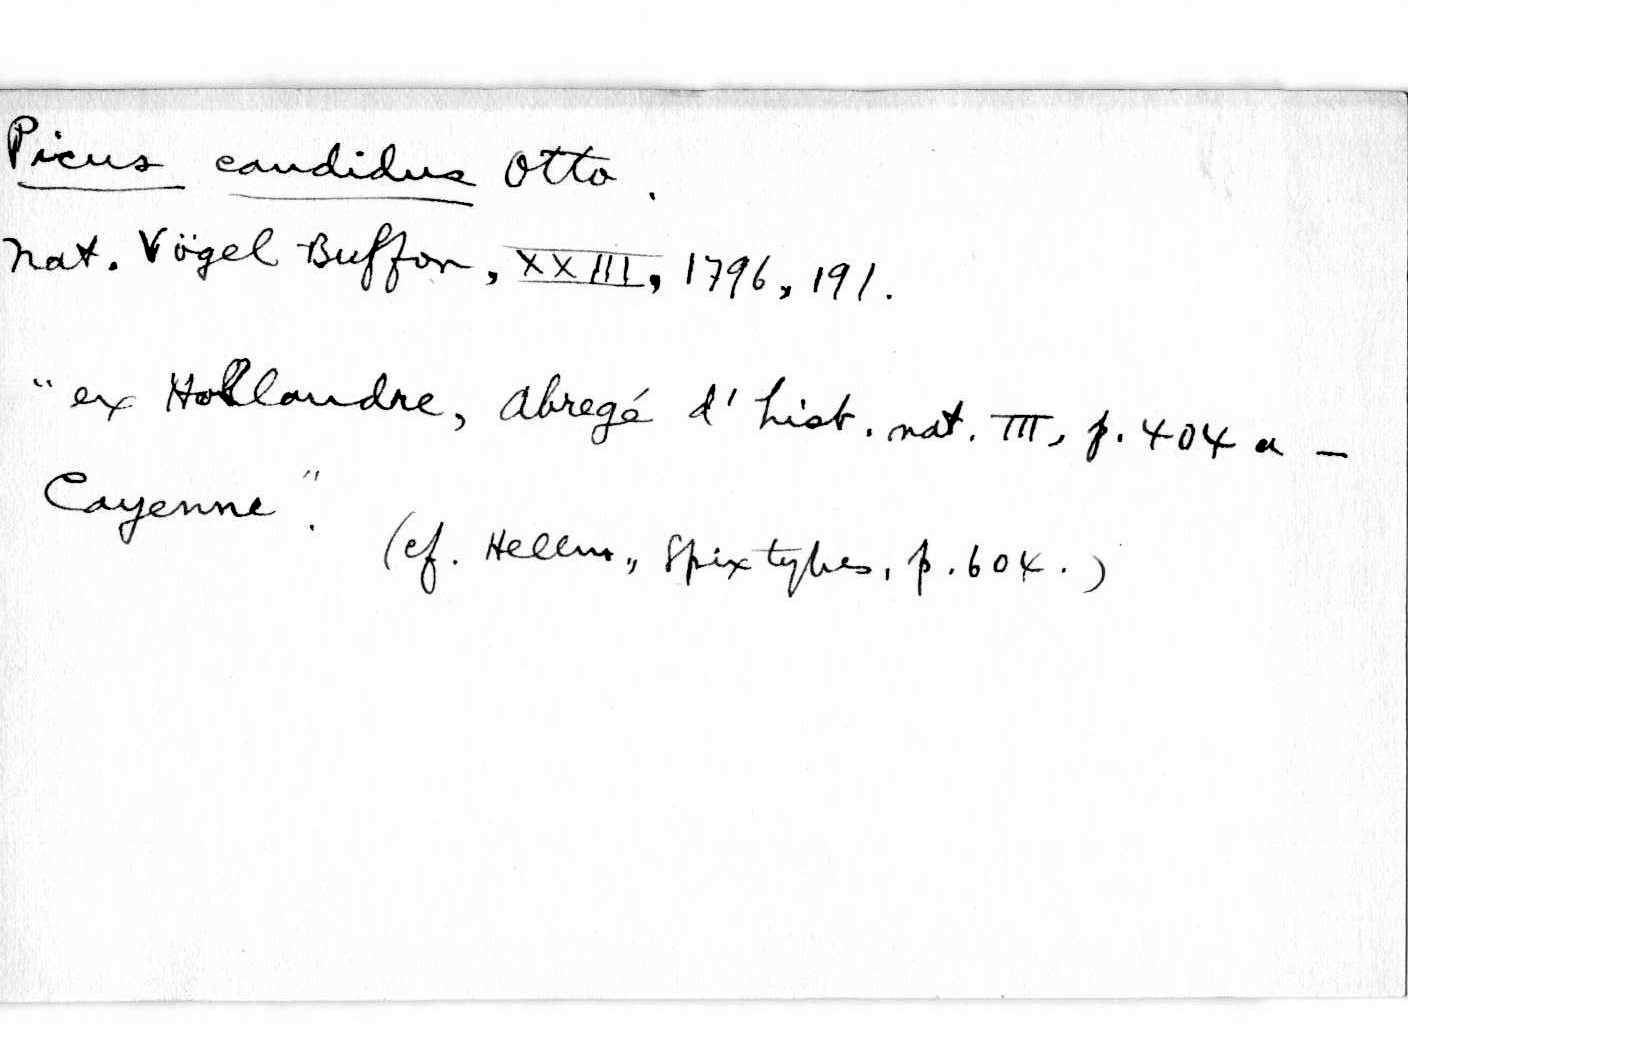 Picus candidus Otto.
Nat. Vögel Buffon, XXIII, 1796, 191.
"ex Hollandre, Abregé d'hist. nat. III, p. 404 a –
Cayenne".
(cf. Hellm., Spixtypes, p. 604.)